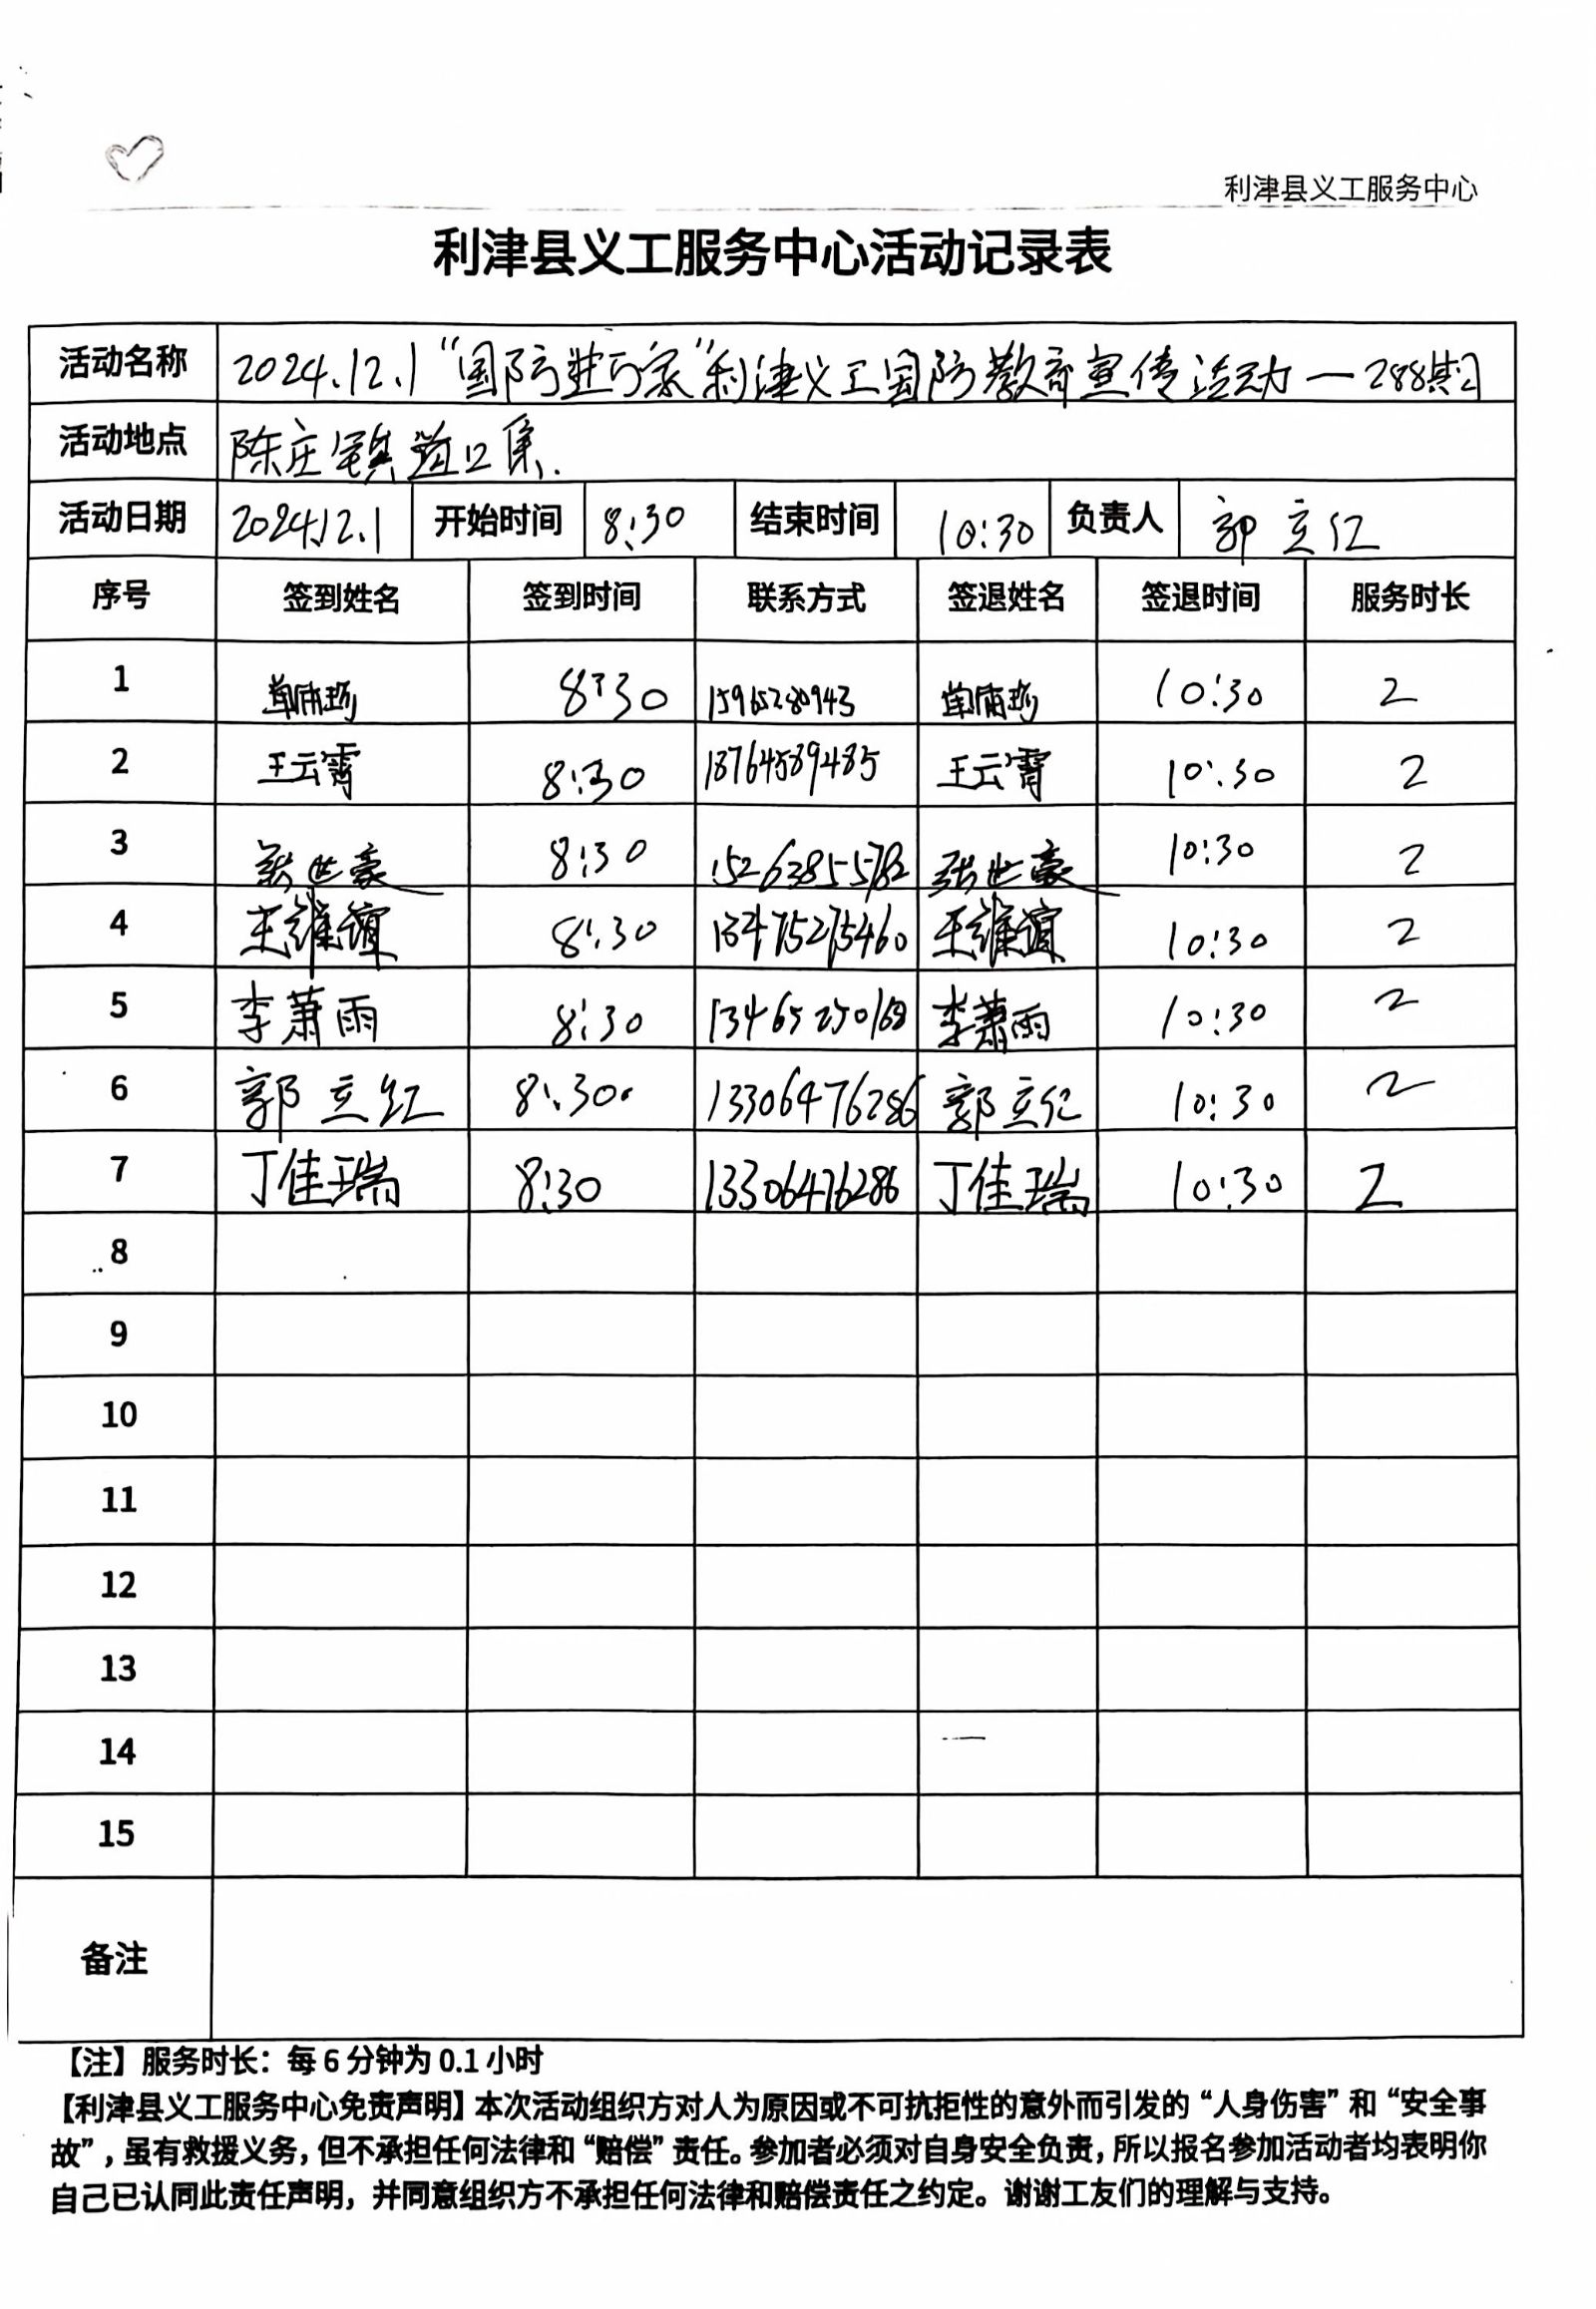 利津县义工服务中心
利津县义工服务中心活动记录表
活动名称 2024.12.1“国防进万家”利津义工国防教育宣传活动—288期
活动地点 陈庄镇 集.
活动日期 2024.12.1 开始时间 8:30 结束时间 10:30 负责人 郭立红
序号 签到姓名 签到时间 联系方式 签退姓名 签退时间 服务时长
1 8:30 15965280943 10:30 2
2 王云霄 8:30 18764589485 王云霄 10:30 2
3 张世豪 8:30 张世豪 10:30 2
4 王维谊 8:30 13475275460 王维谊 10:30 2
5 李萧雨 8:30 李萧雨 10:30 2
6 郭立红 8:30 13306476286 郭立红 10:30 2
7 丁佳瑞 8:30 13306476286 丁佳瑞 10:30 2
8
9
10
11
12
13
14
15
备注
【注】服务时长：每 6 分钟为 0.1 小时
【利津县义工服务中心免责声明】本次活动组织方对人为原因或不可抗拒性的意外而引发的“人身伤害”和“安全事
故”，虽有救援义务，但不承担任何法律和“赔偿”责任。参加者必须对自身安全负责，所以报名参加活动者均表明你
自己已认同此责任声明，并同意组织方不承担任何法律和赔偿责任之约定。谢谢工友们的理解与支持。